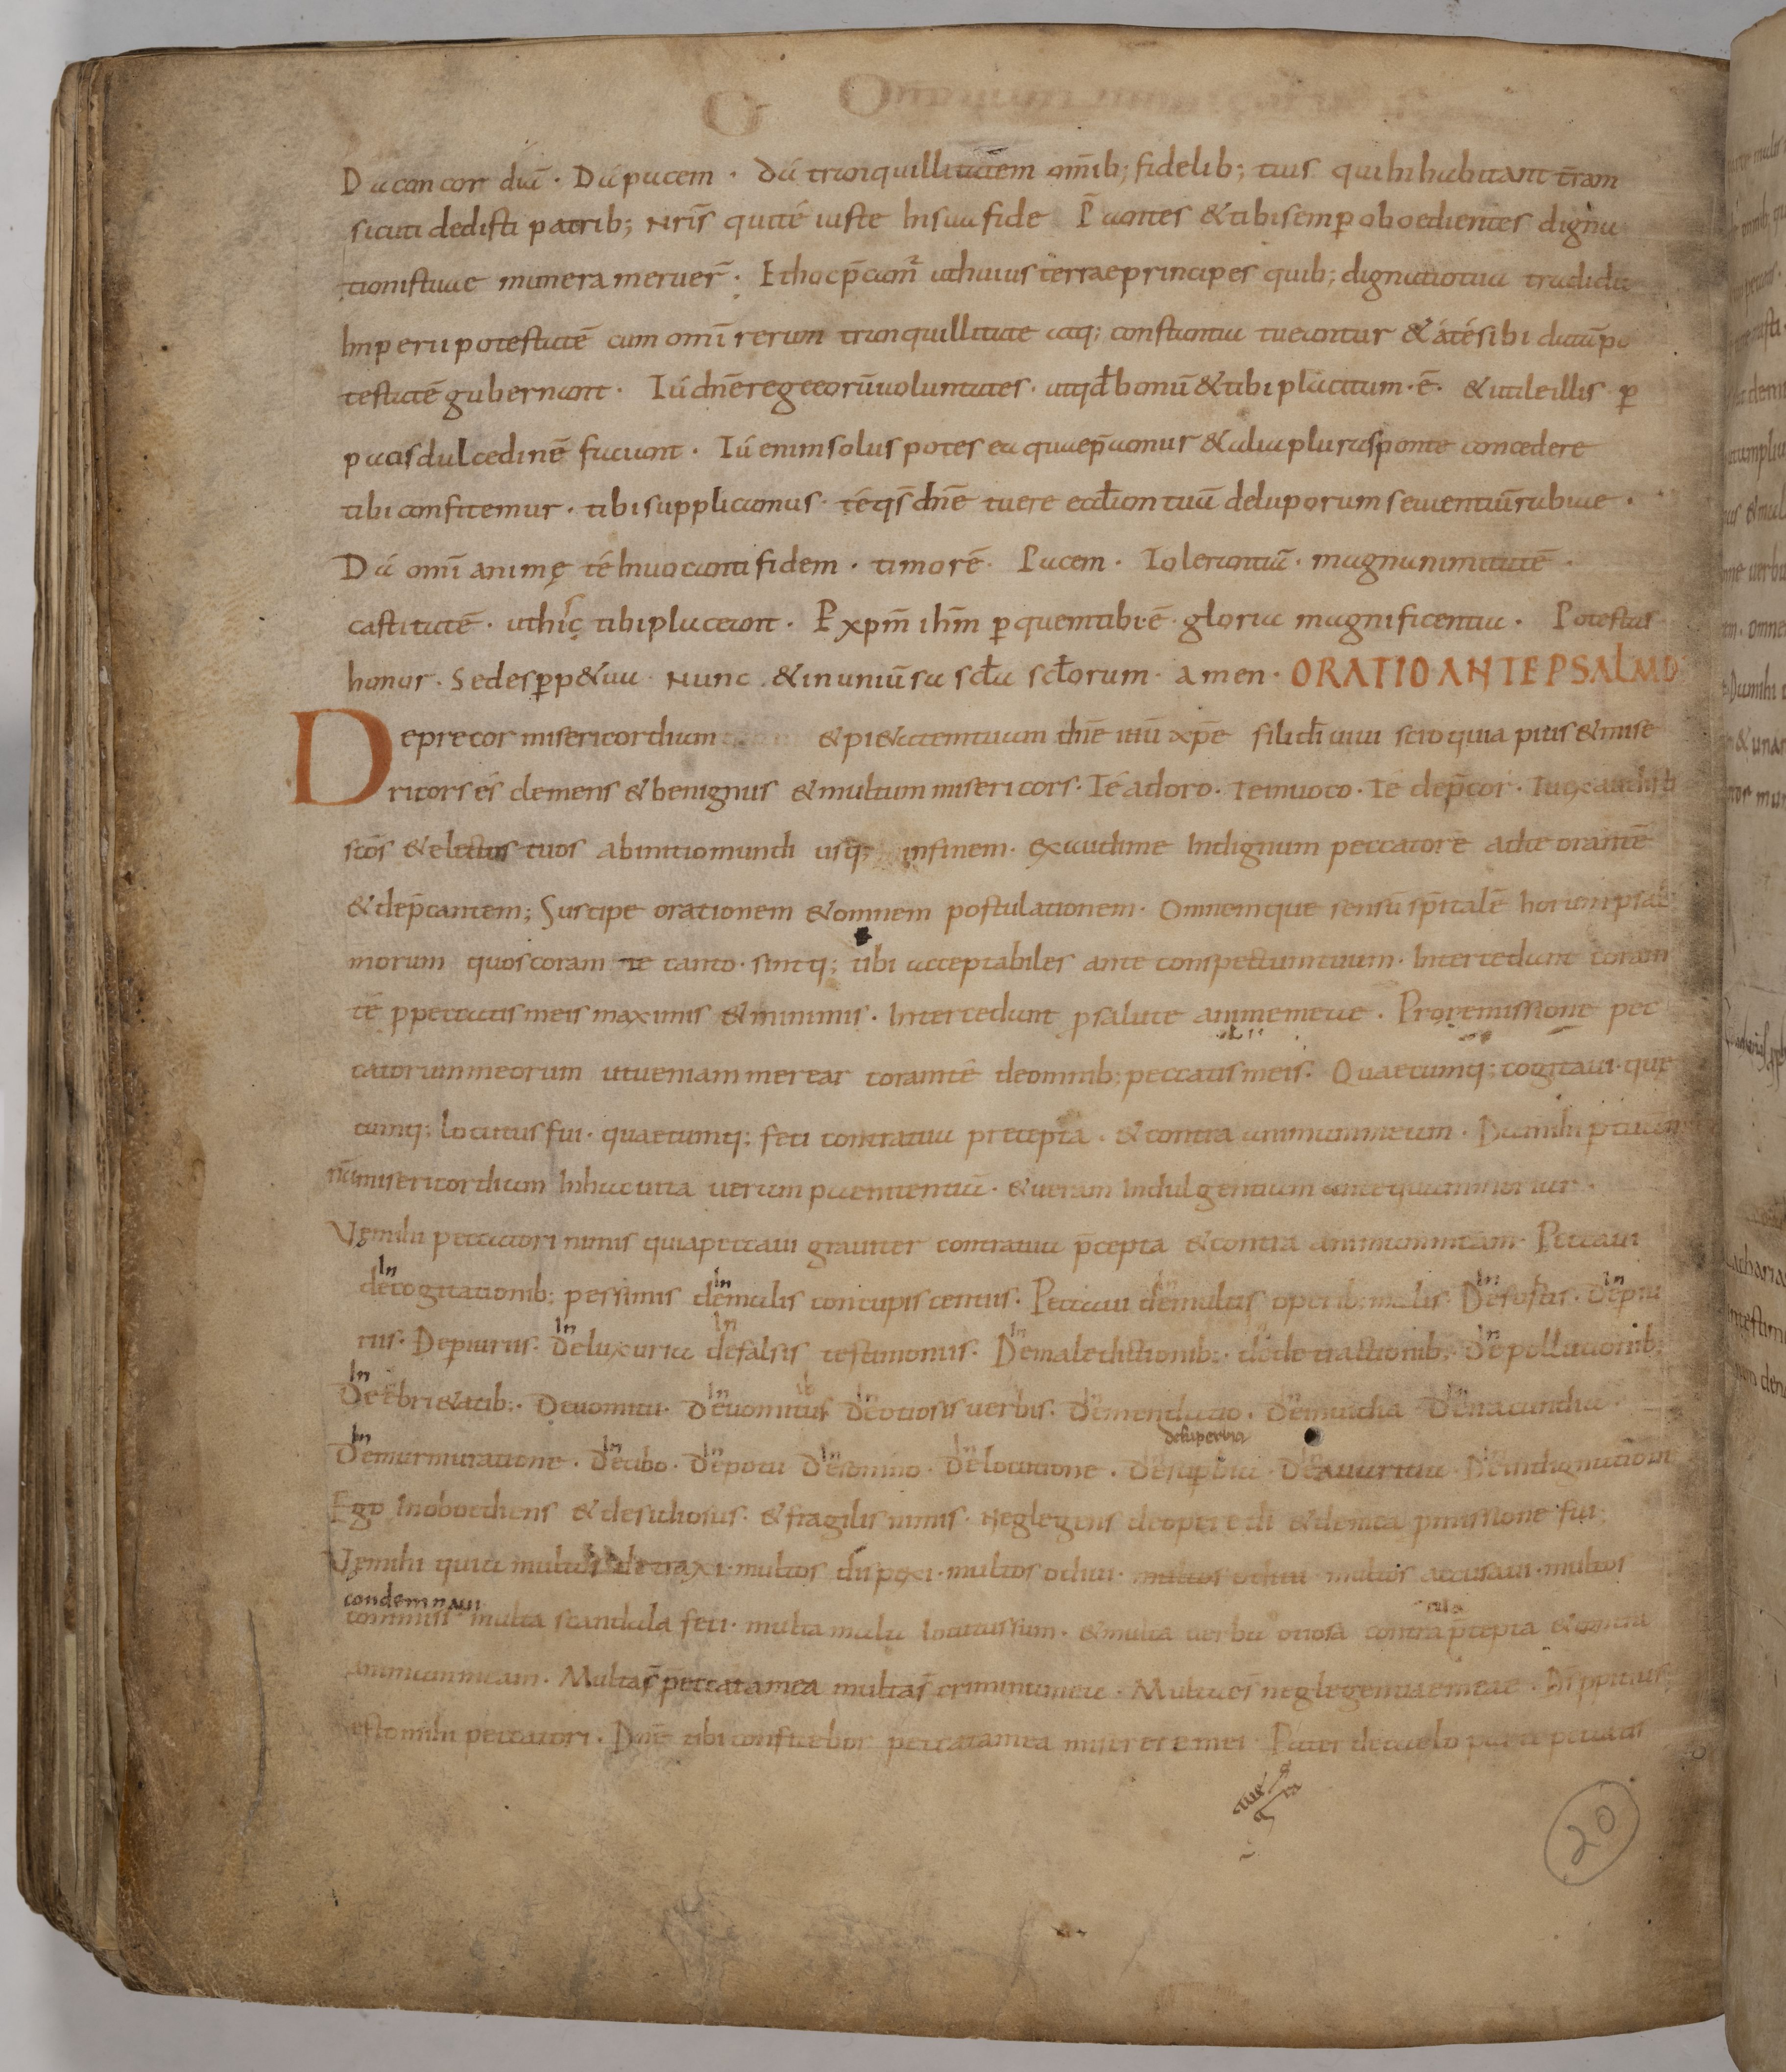 Da concordiā · Dá pacem · dá tranquillitatem om̄ib; fidelib; tuis qui hi habitant t̄ram
sicuti dedisti patrib; nr̄is qui té iuste In sua fide P̄cantes & tibi semp̱ oboedientes digna
tionis tuae munera meruer̄ · Et hoc p̄cam̄ ut huius terrae principes quib; dignatio tua tradidit
Imperii potestatē cum omī rerum tranquillitate atq; constantia tueantur & á té sibi datā po
testatē gubernant · Tú dn̄e rege eorū uoluntates · ut qd̄ bonū & tibi placitum · ē · & utile illis p̱
pacis dulcedinē faciant · Tú enim solus potes ea quae p̄camur & alia plura sponte concedere
tibi confitemur · tibi supplicamus · té qs̄ dn̄e tuere eccl̄iam tuā de luporum seuientiū rabiae ·
Dá omī animę té Inuocanti fidem · timorē · Pacem · Tolerantiā · magnanimitatē ·
castitatē · ut hic tibi placeant · P xpm̄ ihm̄ p̱ quem tibi · ē · gloria magnificentia · Potestas
honor · Sedes p̱p&ua · Nunc · & in uniūsa scl̄a scl̄orum · amen · ORATIO · ANTE PSALMO
Deprecor misericordiam & pi&atem tuam dn̄e ihū xp̄e fili dī uiui scio quia pius & mise
ricors és clemens & benignus & multum misericors · Té adoro · Te inuoco · Té dep̄cor · Tu exaudisti
scōs & electos tuos ab initio mundi usq; in finem · exaudi me Indignum peccatorē ad te orantē
& dep̄cantem; Suscipe orationem & omnem postulationem · Omnemque sensū sp̄italē horum psal
morum quos coram te canto · sintq; tibi acceptabiles ante conspectum tuum · Intercedant coram
té p peccatis meis maximis & minimis · Intercedant p salute animę meae · Pro remissione pec
catorum meorum ut ueniam merear coram té de omnib; peccatis meis · Quaecumq; cogitaui · que
cumq; locutus fui · quaecumq; feci contra tua precepta · & contra animam meam · Da mihi
misericordiam In hac uita ueram paenitentiā · & ueram Indulgentiam antequam moriar ·
Vę mihi peccatori nimis quia peccaui grauiter contra tua p̄cepta & contra animam meam · Peccaui
In In In In
de cogitationib; pessimis de malis concupiscentiis · Peccaui de multis operib; malis ·
In In In In
riis · De periuriis · De luxuria de falsis testimoniis · De maledictionib; · de detractionib; · De pollutionib;
In In In In In
De ebri&atib; · De uomitu · De uomitus De otiosis uerbis · De mendacio · De inuidia De iracundia ·
In In In In In de superbia
De murmuratione · De cibo · De potu De somno · De locutione · De supbia · De auaritia · De indignatione
Ego Inoboediens & desidiosus · & fragilis nimis · Neglegens de opere dī & de mea pmissione fui;
Vę mihi quia multis detraxi · multos dispexi · multos odiui · multos odiui multos accusaui · multos
condemnaui
commisi · multa scandala feci · multa mala locutus sum · & multa uerba otiosa contra p̄cepta & contra
animam meam · Multa s̄ peccata mea multa s̄ crimina mea · Multae s̄ neglegentiae meae ·
esto mihi peccatori · Dn̄e tibi confitebor peccata mea miserere mei Pater de caelo
20